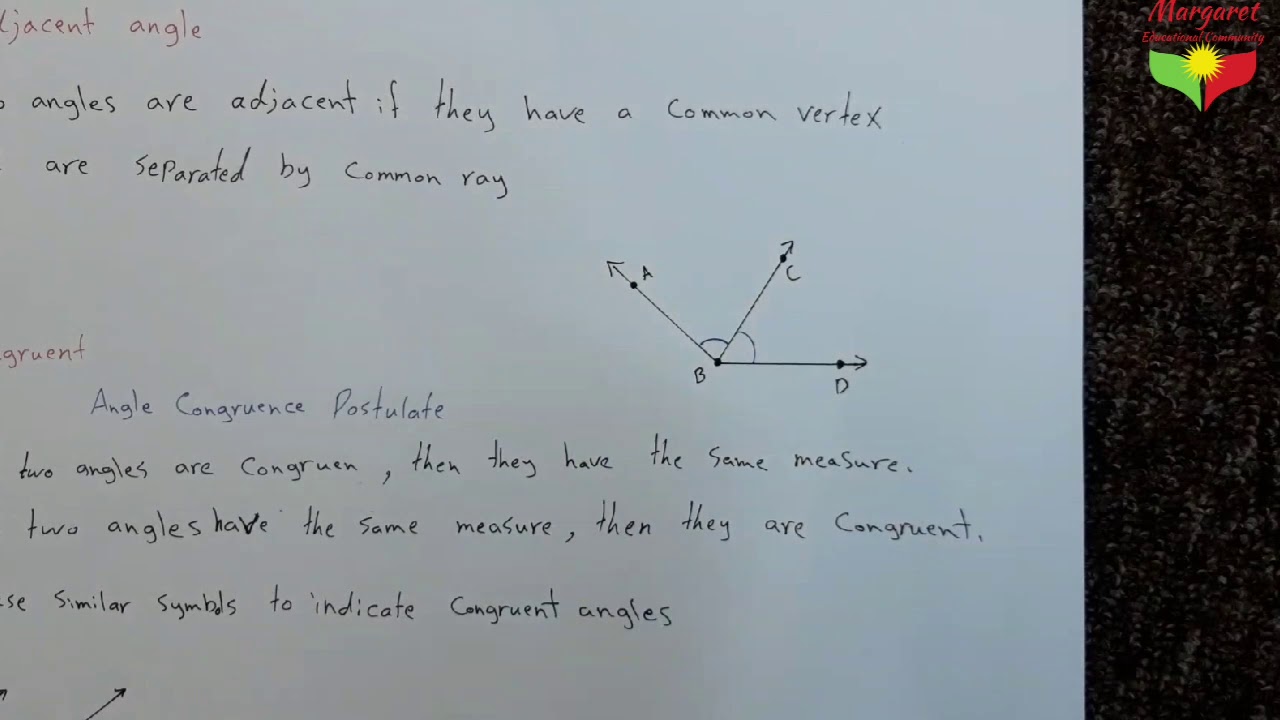 Margaret
Educational Community
djacent angle
o angles are adjacent if they have a common vertex
are separated by common ray
A
C
B
D
gruent
Angle Congruence Postulate
two angles are congruen, then they have the same measure.
two angles have the same measure, then they are congruent.
se similar symbols to indicate congruent angles